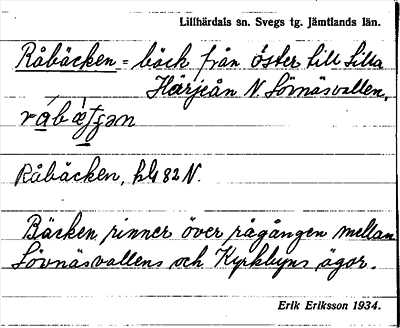 Lillhärdals sn. Svegs tg. Jämtlands län.
Råbäcken = bäck från öster till Lilla
Härjeån N. Lövnäsvallen,
Råbäcken, hbl 82 N.
Bäcken rinner över rågången mellan
Lövnäsvallens och Kyrkbyns ägor.
Erik Eriksson 1934.